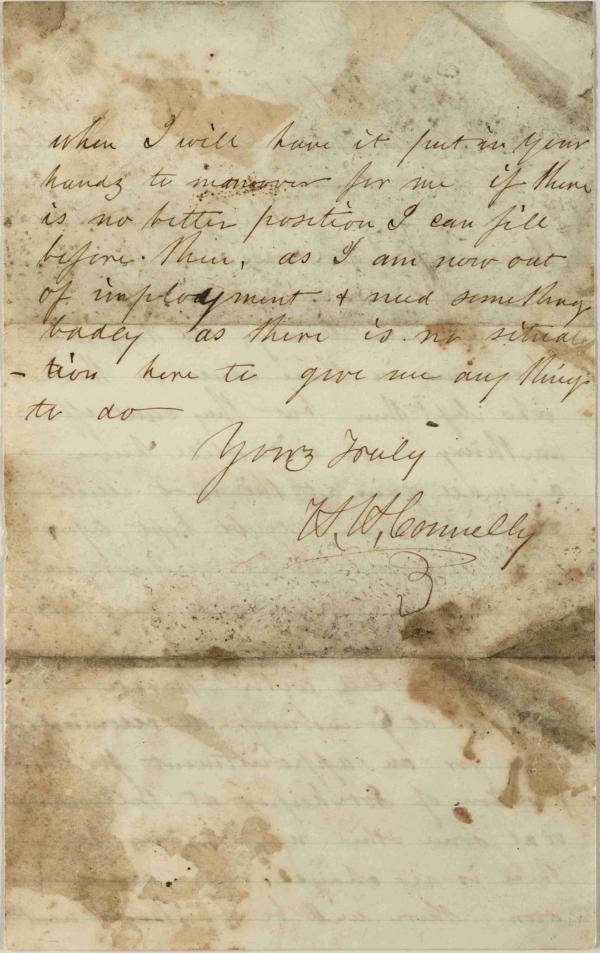 when I will have it put in your
hands to manover for me if there
is no better position I can fill
before then, as I am now out
of imployment & need something
badly as there is no situa
-tion here to give me any thing
to do
Yours Truly
H. H. Connelly